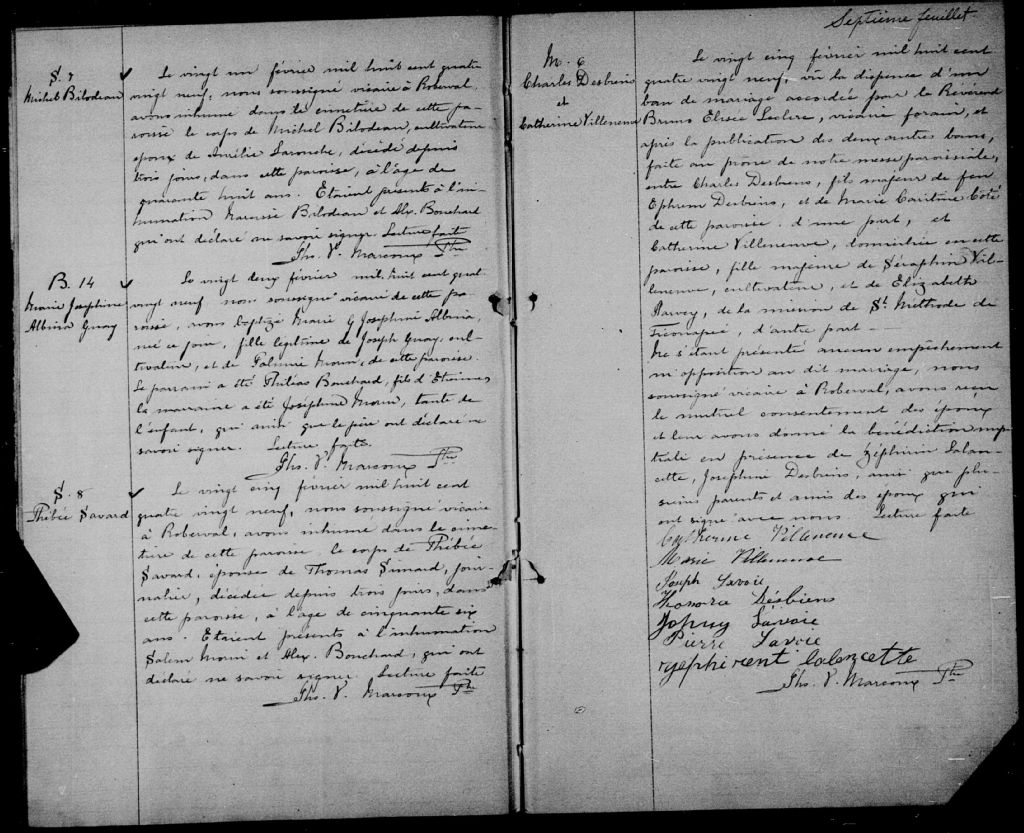 S. 7
Michel Bilodeau
Le vingt un février mil huit cent quatre
vingt neuf, nous soussigné vicaire à Roberval,
avons inhumé dans le cimetière de cette pa-
roisse le corps de Michel Bilodeau, cultivateur
époux de Amélie Larouche, décédé depuis
trois jours, dans cette paroisse, à l'âge de
quarante huit ans. Etaient présents à l'in-
humation Narcisse Bilodeau et Alex. Bouchard
qui ont déclaré ne savoir signer. Lecture faite
Ths. V. Marcoux Ptre
B. 14
Marie Josephine
Albina Guay
Le vingt deux février mil huit cent quat
vingt neuf nous soussigné vicaire de cette pa-
roisse, avons baptizé Marie Josephine Albina,
née ce jour, fille légitime de Joseph Guay, cul-
tivateur, et de Morin, de cette paroisse.
Le parrain a été Philéas Bouchard, fils d'Etienne,
la marraine a été Joséphine Morin, tante de
l'enfant, qui ainsi que le père ont déclaré ne
savoir signer. Lecture faite.
Ths. V. Marcoux Ptre
S. 8
Phébée Savard
Le vingt cinq février mil huit cent
quatre vingt neuf, nous soussigné vicaire
à Roberval, avons inhumé dans le cime-
tière de cette paroisse le corps de Phébée
Savard, épouse de Thomas Simard, jour-
nalier, décédée depuis trois jours, dans
cette paroisse, à l'âge de cinquante six
ans. Etaient présents à l'inhumation
Salem Morin et Alex. Bouchard, qui ont
déclaré ne savoir signer. Lecture faite
Ths. V. Marcoux Ptre
Septième feuillet
M. 6
Charles Desbiens
et
Catherine Villeneuve
Le vingt cinq février mil huit cent
quatre vingt neuf, vu la dispense d'un
ban de mariage accordée par le Révérend
Bruno Elisée Leclerc, vicaire forain, et
après la publication des deux autres bans,
faite au prône de notre messe paroissiale,
entre Charles Desbiens, fils majeur de feu
Ephrem Desbiens, et de Marie Caritine Côté
de cette paroisse. d'une part, et
Catherine Villeneuve, domiciliée en cette
paroisse, fille majeure de Séraphin Vil-
leneuve, cultivateur, et de Elizabeth
de la mission de St Méthode de
Ticouapée, d'autre part —
Ne s'étant présenté aucun empêchement
ni opposition au dit mariage, nous
soussigné vicaire à Roberval, avons reçu
le mutuel consentement des époux
et leur avons donné la bénédiction nup
tiale en présence de Zéphirin Lalan-
cette, Josephine Desbiens, ainsi que plu-
sieurs parents et amis des époux qui
ont signé avec nous Lecture faite
Catherine Villeneuve
Marie Villeneuve
Joseph Savoie
Honoré Désbiens
Johny Savoie
Pierre Savoie
Zephirent lalancette
Ths. V. Marcoux Ptre